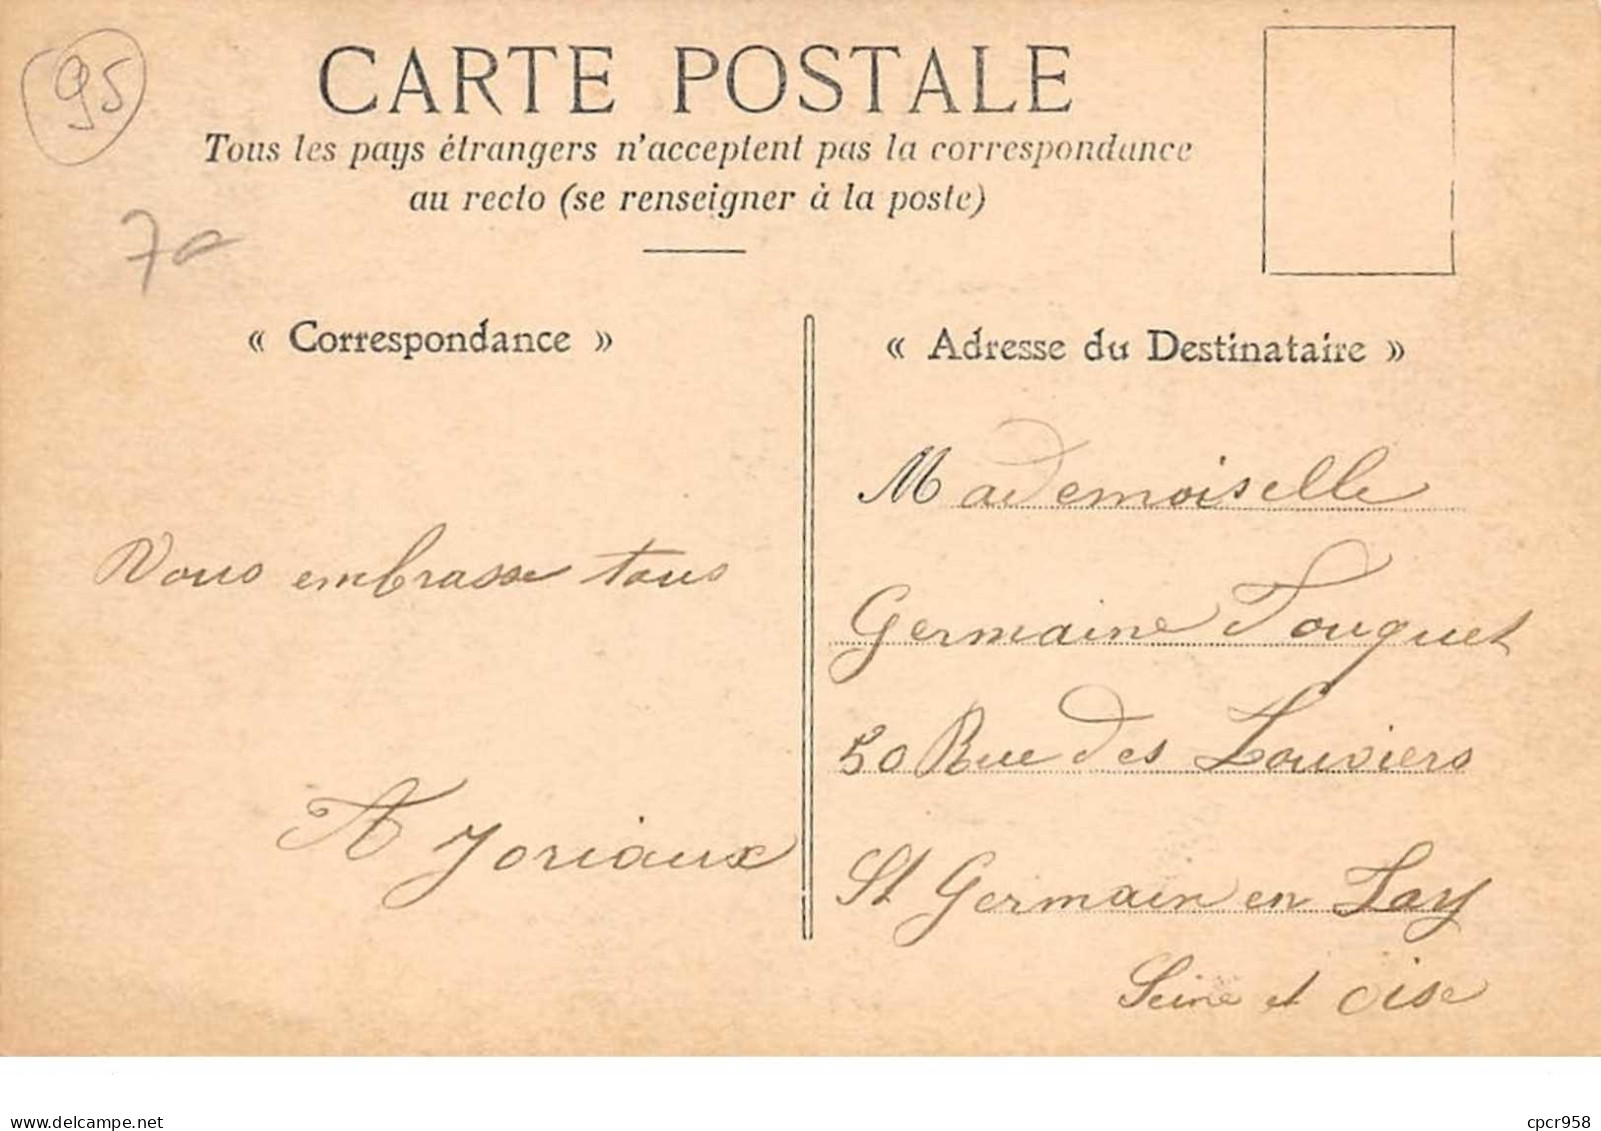 95
CARTE POSTALE
Tous les pays étrangers n'acceptent pas la correspondance
au recto (se renseigner à la poste)
70
« Correspondance »
Vous embrasse tous
A Joriaux
« Adresse du Destinataire »
Mademoiselle
Germaine Fouquet
50 Rue des Louviers
St Germain en Lay
Seine et oise
www.delcampe.net
cpcr958